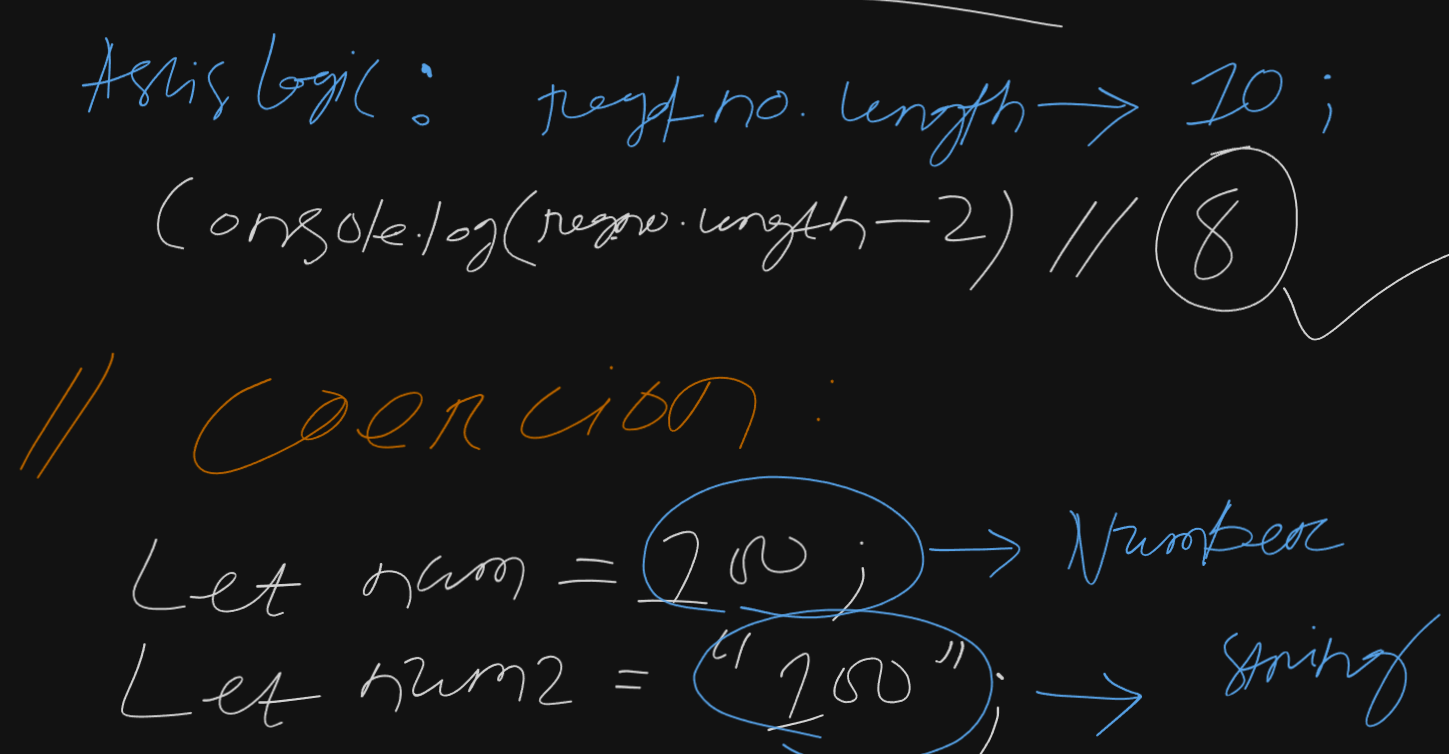 Ashis Logic: regd no. length → 10;
Console.log(regno.length-2) // 8
// Coercion:
Let num = 100; → Number
Let num2 = "100"; → String